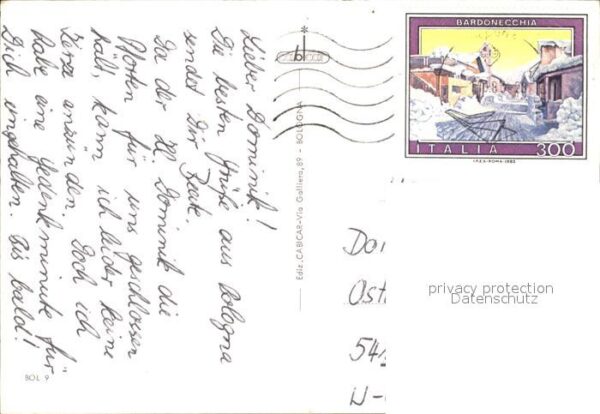 Lieber Dominik!
Die besten Grüße aus Bologna
sendet Dir Beate.
Da der Hl. Dominik die
Pforten für uns geschlossen
hält, kann ich leider keine
Kerze anzünden. Doch ich
habe eine Gedenkminute für
Dich eingehalten. Bis bald!
BOL 9
Ediz. CABICAR-Via Galliera, 89 - BOLOGNA
BARDONECCHIA
ITALIA 300
I.P.Z.S.-ROMA-1982
Do
Ost
54
W-
privacy protection
Datenschutz